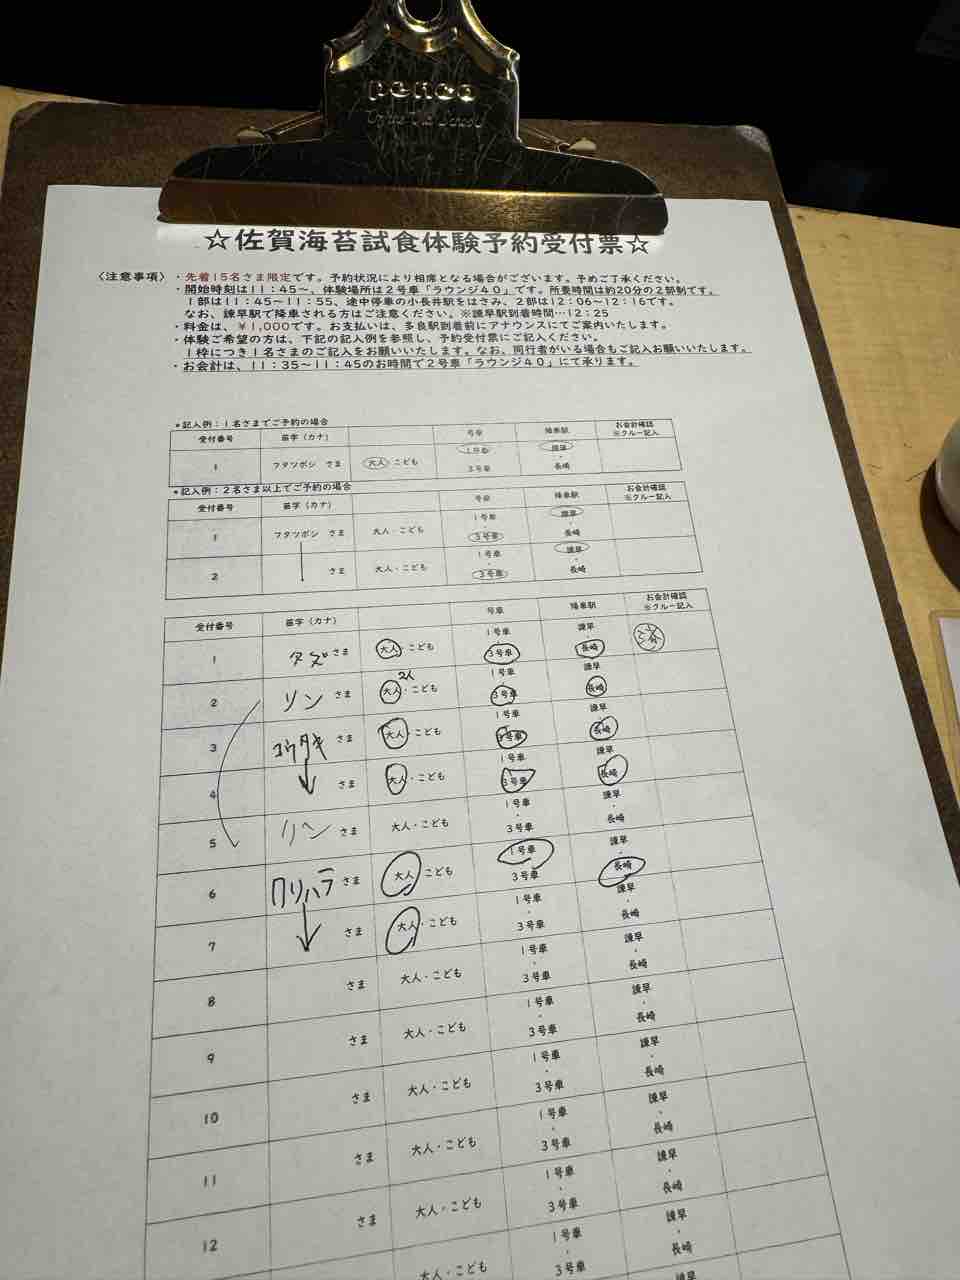 penco
☆佐賀海苔試食体験予約受付票☆
〈注意事項〉・先着15名さま限定です。予約状況により相席となる場合がございます。予めご了承ください。
・開始時刻は11:45～、体験場所は2号車「ラウンジ40」です。所要時間は約20分の2部制です。
1部は11:45～11:55、途中停車の小長井駅をはさみ、2部は12:06～12:16です。
なお、諫早駅で降車される方はご注意ください。※諫早駅到着時間…12:25
・料金は、¥1,000です。お支払いは、多良駅到着前にアナウンスにてご案内いたします。
・体験ご希望の方は、下記の記入例を参照し、予約受付票にご記入ください。
1枠につき1名さまのご記入をお願いいたします。なお、同行者がいる場合もご記入お願いいたします。
・お会計は、11:35～11:45のお時間で2号車「ラウンジ40」にて承ります。
*記入例:1名さまでご予約の場合
受付番号 苗字(カナ) 号車 降車駅 お会計確認 ※クルー記入
1 フタツボシ さま 大人・こども 1号車・3号車 諫早・長崎
*記入例:2名さま以上でご予約の場合
受付番号 苗字(カナ) 号車 降車駅 お会計確認 ※クルー記入
1 フタツボシ さま 大人・こども 1号車・3号車 諫早・長崎
2 さま 大人・こども 1号車・3号車 諫早・長崎
受付番号 苗字(カナ) 号車 降車駅 お会計確認 ※クルー記入
1 さま 大人・こども 1号車・3号車 諫早・長崎
2 リン さま 大人・こども 2人 1号車・3号車 諫早・長崎
3 コウタキ さま 大人・こども 1号車・3号車 諫早・長崎
4 さま 大人・こども 1号車・3号車 諫早・長崎
5 リン さま 大人・こども 1号車・3号車 諫早・長崎
6 クリハラ さま 大人・こども 1号車・3号車 諫早・長崎
7 さま 大人・こども 1号車・3号車 諫早・長崎
8 さま 大人・こども 1号車・3号車 諫早・長崎
9 さま 大人・こども 1号車・3号車 諫早・長崎
10 さま 大人・こども 1号車・3号車 諫早・長崎
11 さま 大人・こども 1号車・3号車 諫早・長崎
12 さま 大人・こども 1号車・3号車 諫早・長崎
大人・こども 諫早